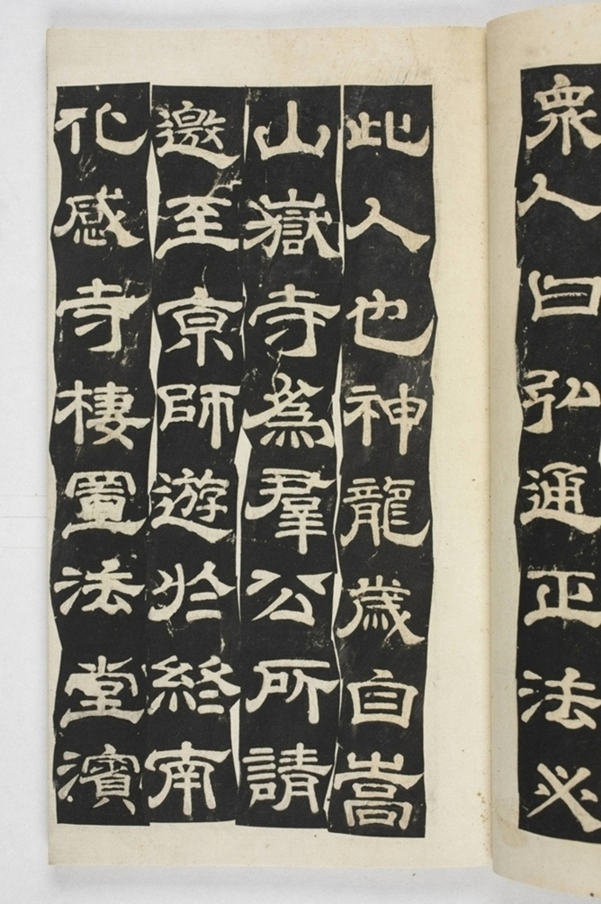 衆人曰弘通正法必
此人也神龍歲自嵩
山嶽寺為羣公所請
邀至京師遊於終南
化感寺棲置法堂濱